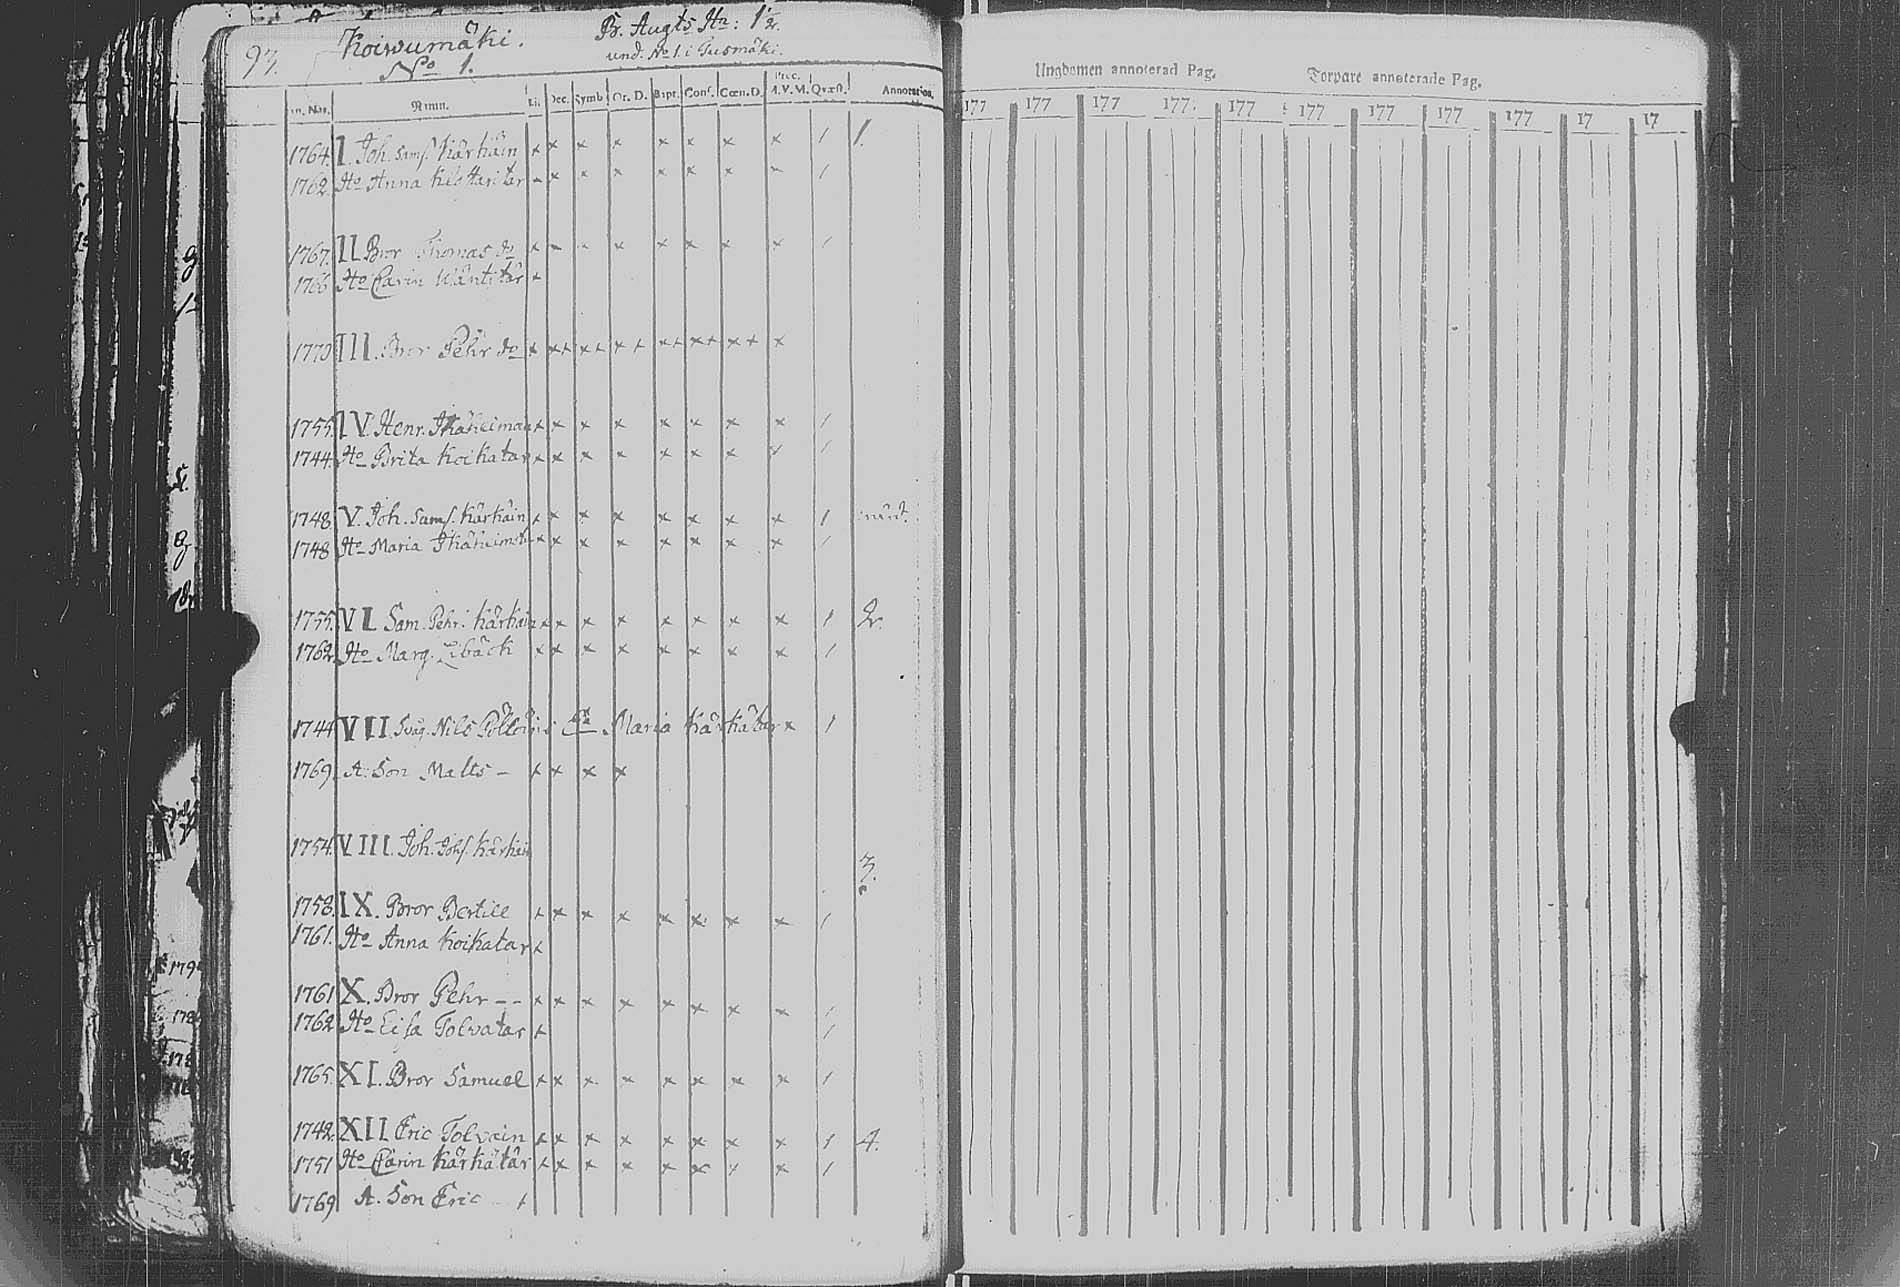 93.
Koiwumäki.
No 1.
Br. Augts Hn: 1/2.
und. No 1. i Pusmäki.
Nomn. Dec. Symb. Or. D. Bapt. Conf. Cœn. D. Prec. M.V.M. Quæst. Annotation.
1764. I. Joh. Sams. Kärkäin 1.
1762. Ho Anna
1767. II Bror Thomas do
1766 Ho Carin Wäntitär
1770 III. Bror Pehr do
1755. IV. Henr. Ikäheimoin
1744. Ho Brita Koikatar
1748. V. Joh. Sams. Kärkäin
1748 Ho Maria
1755. VI Sam. Pehr. Kärkäin 2.
1762. Ho Marg. Libäck
1744 VII Svåg. Nils Maria Kärkätar
1769. A. Son Matts –
1754. VIII. Joh. Johs. Kärkäin
3.
1758. IX. Bror Bertil
1761. Ho Anna Koikatar
1761 X. Bror Pehr – –
1762 Ho Lisa Tolvatar
1765. XI. Bror Samuel
1742. XII Eric Tolvain 4.
1751 Ho Carin Kärkätär
1769 A. Son Eric
Ungbarnen annoterad Pag. Torpare annoterade Pag.
177 177 177 177. 177 177 177 177 177 17 17